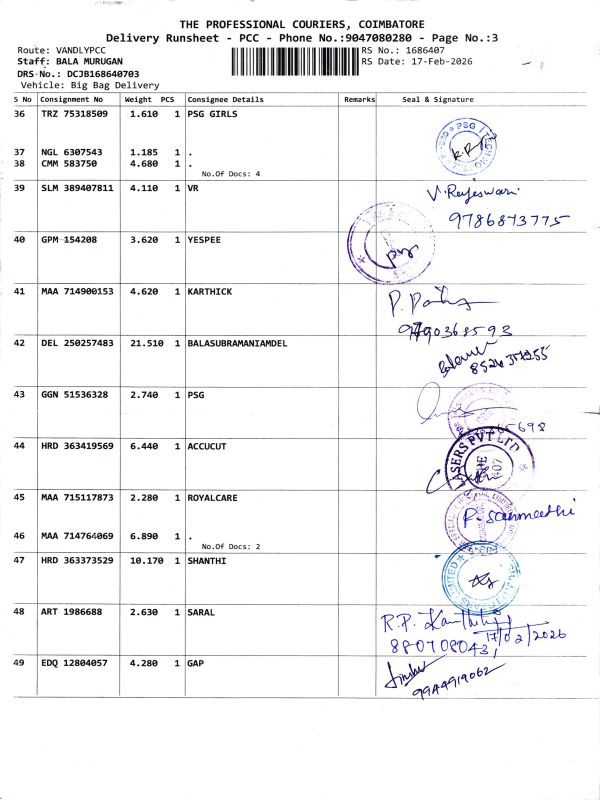 THE PROFESSIONAL COURIERS, COIMBATORE
Delivery Runsheet - PCC - Phone No.:9047080280 - Page No.:3
Route: VANDLYPCC RS No.: 1686407
Staff: BALA MURUGAN RS Date: 17-Feb-2026
DRS-No.: DCJB168640703
Vehicle: Big Bag Delivery
S No Consignment No Weight PCS Consignee Details Remarks Seal & Signature
36 TRZ 75318509 1.610 1 PSG GIRLS
37 NGL 6307543 1.185 1 .
38 CMM 583750 4.680 1 .
No.Of Docs: 4
39 SLM 389407811 4.110 1 VR
9786873775
40 GPM 154208 3.620 1 YESPEE
41 MAA 714900153 4.620 1 KARTHICK
42 DEL 250257483 21.510 1 BALASUBRAMANIAMDEL
43 GGN 51536328 2.740 1 PSG
44 HRD 363419569 6.440 1 ACCUCUT
ASERS PVT LTD
45 MAA 715117873 2.280 1 ROYALCARE
46 MAA 714764069 6.890 1 .
No.Of Docs: 2
47 HRD 363373529 10.170 1 SHANTHI
48 ART 1986688 2.630 1 SARAL
17/02/2026
49 EDQ 12804057 4.280 1 GAP